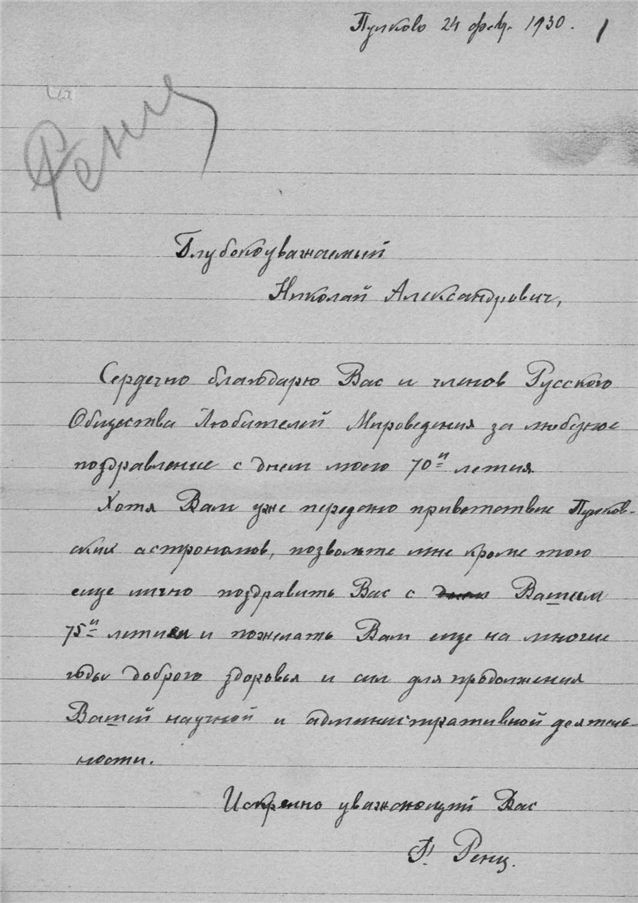 Пулково 24 февр. 1930. 1
Ренц
Глубокоуважаемый
Николай Александрович,
Сердечно благодарю Вас и членов Русского
Общества Любителей Мироведения за любезное
поздравление с днем моего 70и летия.
Хотя Вам уже передано приветствие Пулков-
ских астрономов, позвольте мне кроме того
еще лично поздравить Вас с днем Вашим
75и летием и пожелать Вам еще на многие
годы доброго здоровья и сил для продолжения
Вашей научной и административной деятель-
ности.
Искренно уважающий Вас
Ф. Ренц.